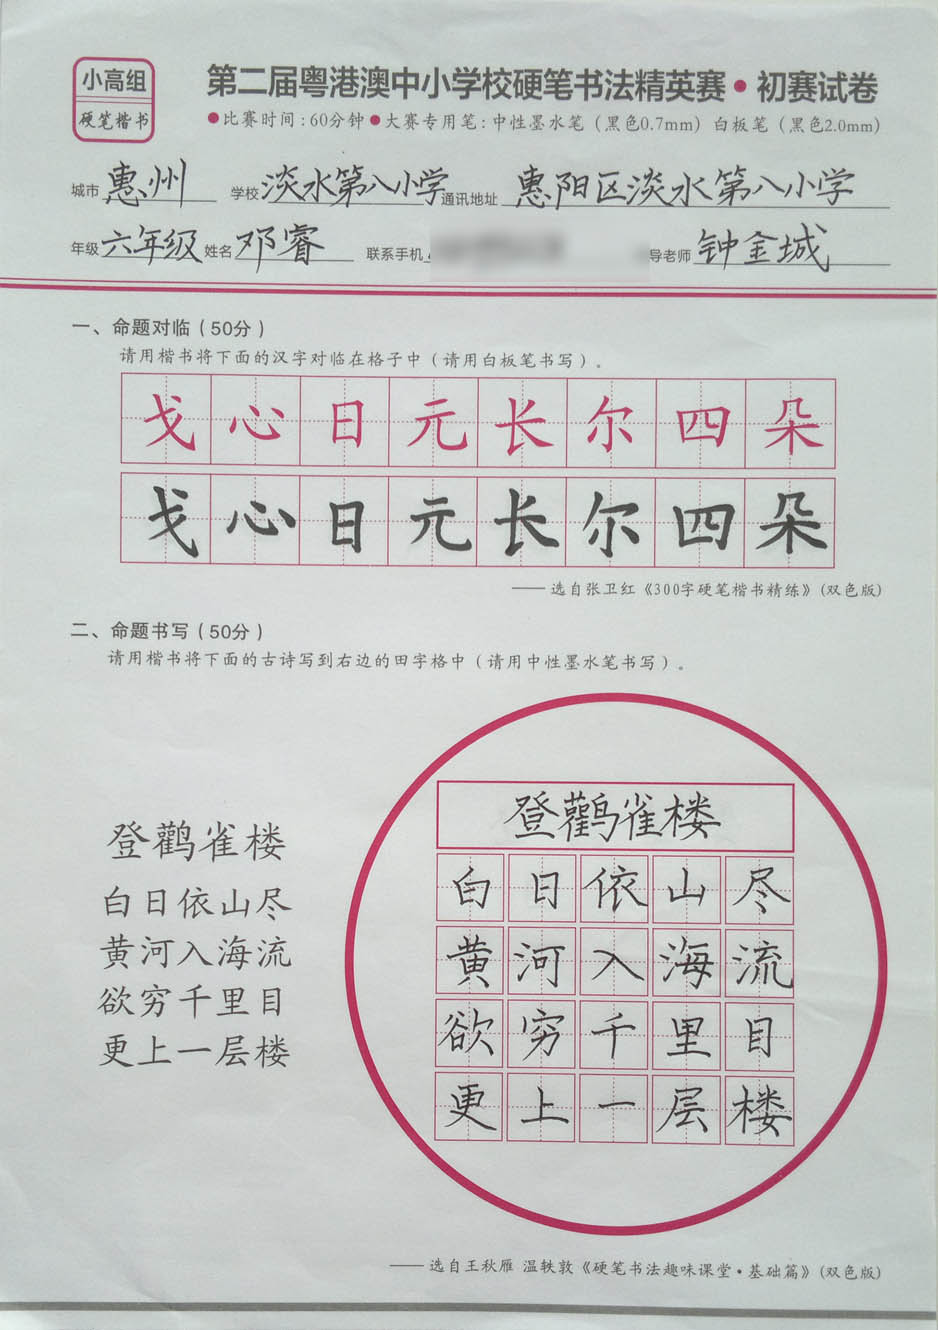 小高组
硬笔楷书
第二届粤港澳中小学校硬笔书法精英赛·初赛试卷
●比赛时间:60分钟●大赛专用笔:中性墨水笔(黑色0.7mm)白板笔(黑色2.0mm)
城市 惠州 学校 淡水第八小学 通讯地址 惠阳区淡水第八小学
年级 六年级 姓名 邓睿 联系手机 导老师 钟金城
一、命题对临(50分)
请用楷书将下面的汉字对临在格子中(请用白板笔书写)。
戈心日元长尔四朵
戈心日元长尔四朵
——选自张卫红《300字硬笔楷书精练》(双色版)
二、命题书写(50分)
请用楷书将下面的古诗写到右边的田字格中(请用中性墨水笔书写)。
登鹳雀楼
白日依山尽
黄河入海流
欲穷千里目
更上一层楼
登鹳雀楼
白日依山尽
黄河入海流
欲穷千里目
更上一层楼
——选自王秋雁 温轶敦《硬笔书法趣味课堂·基础篇》(双色版)